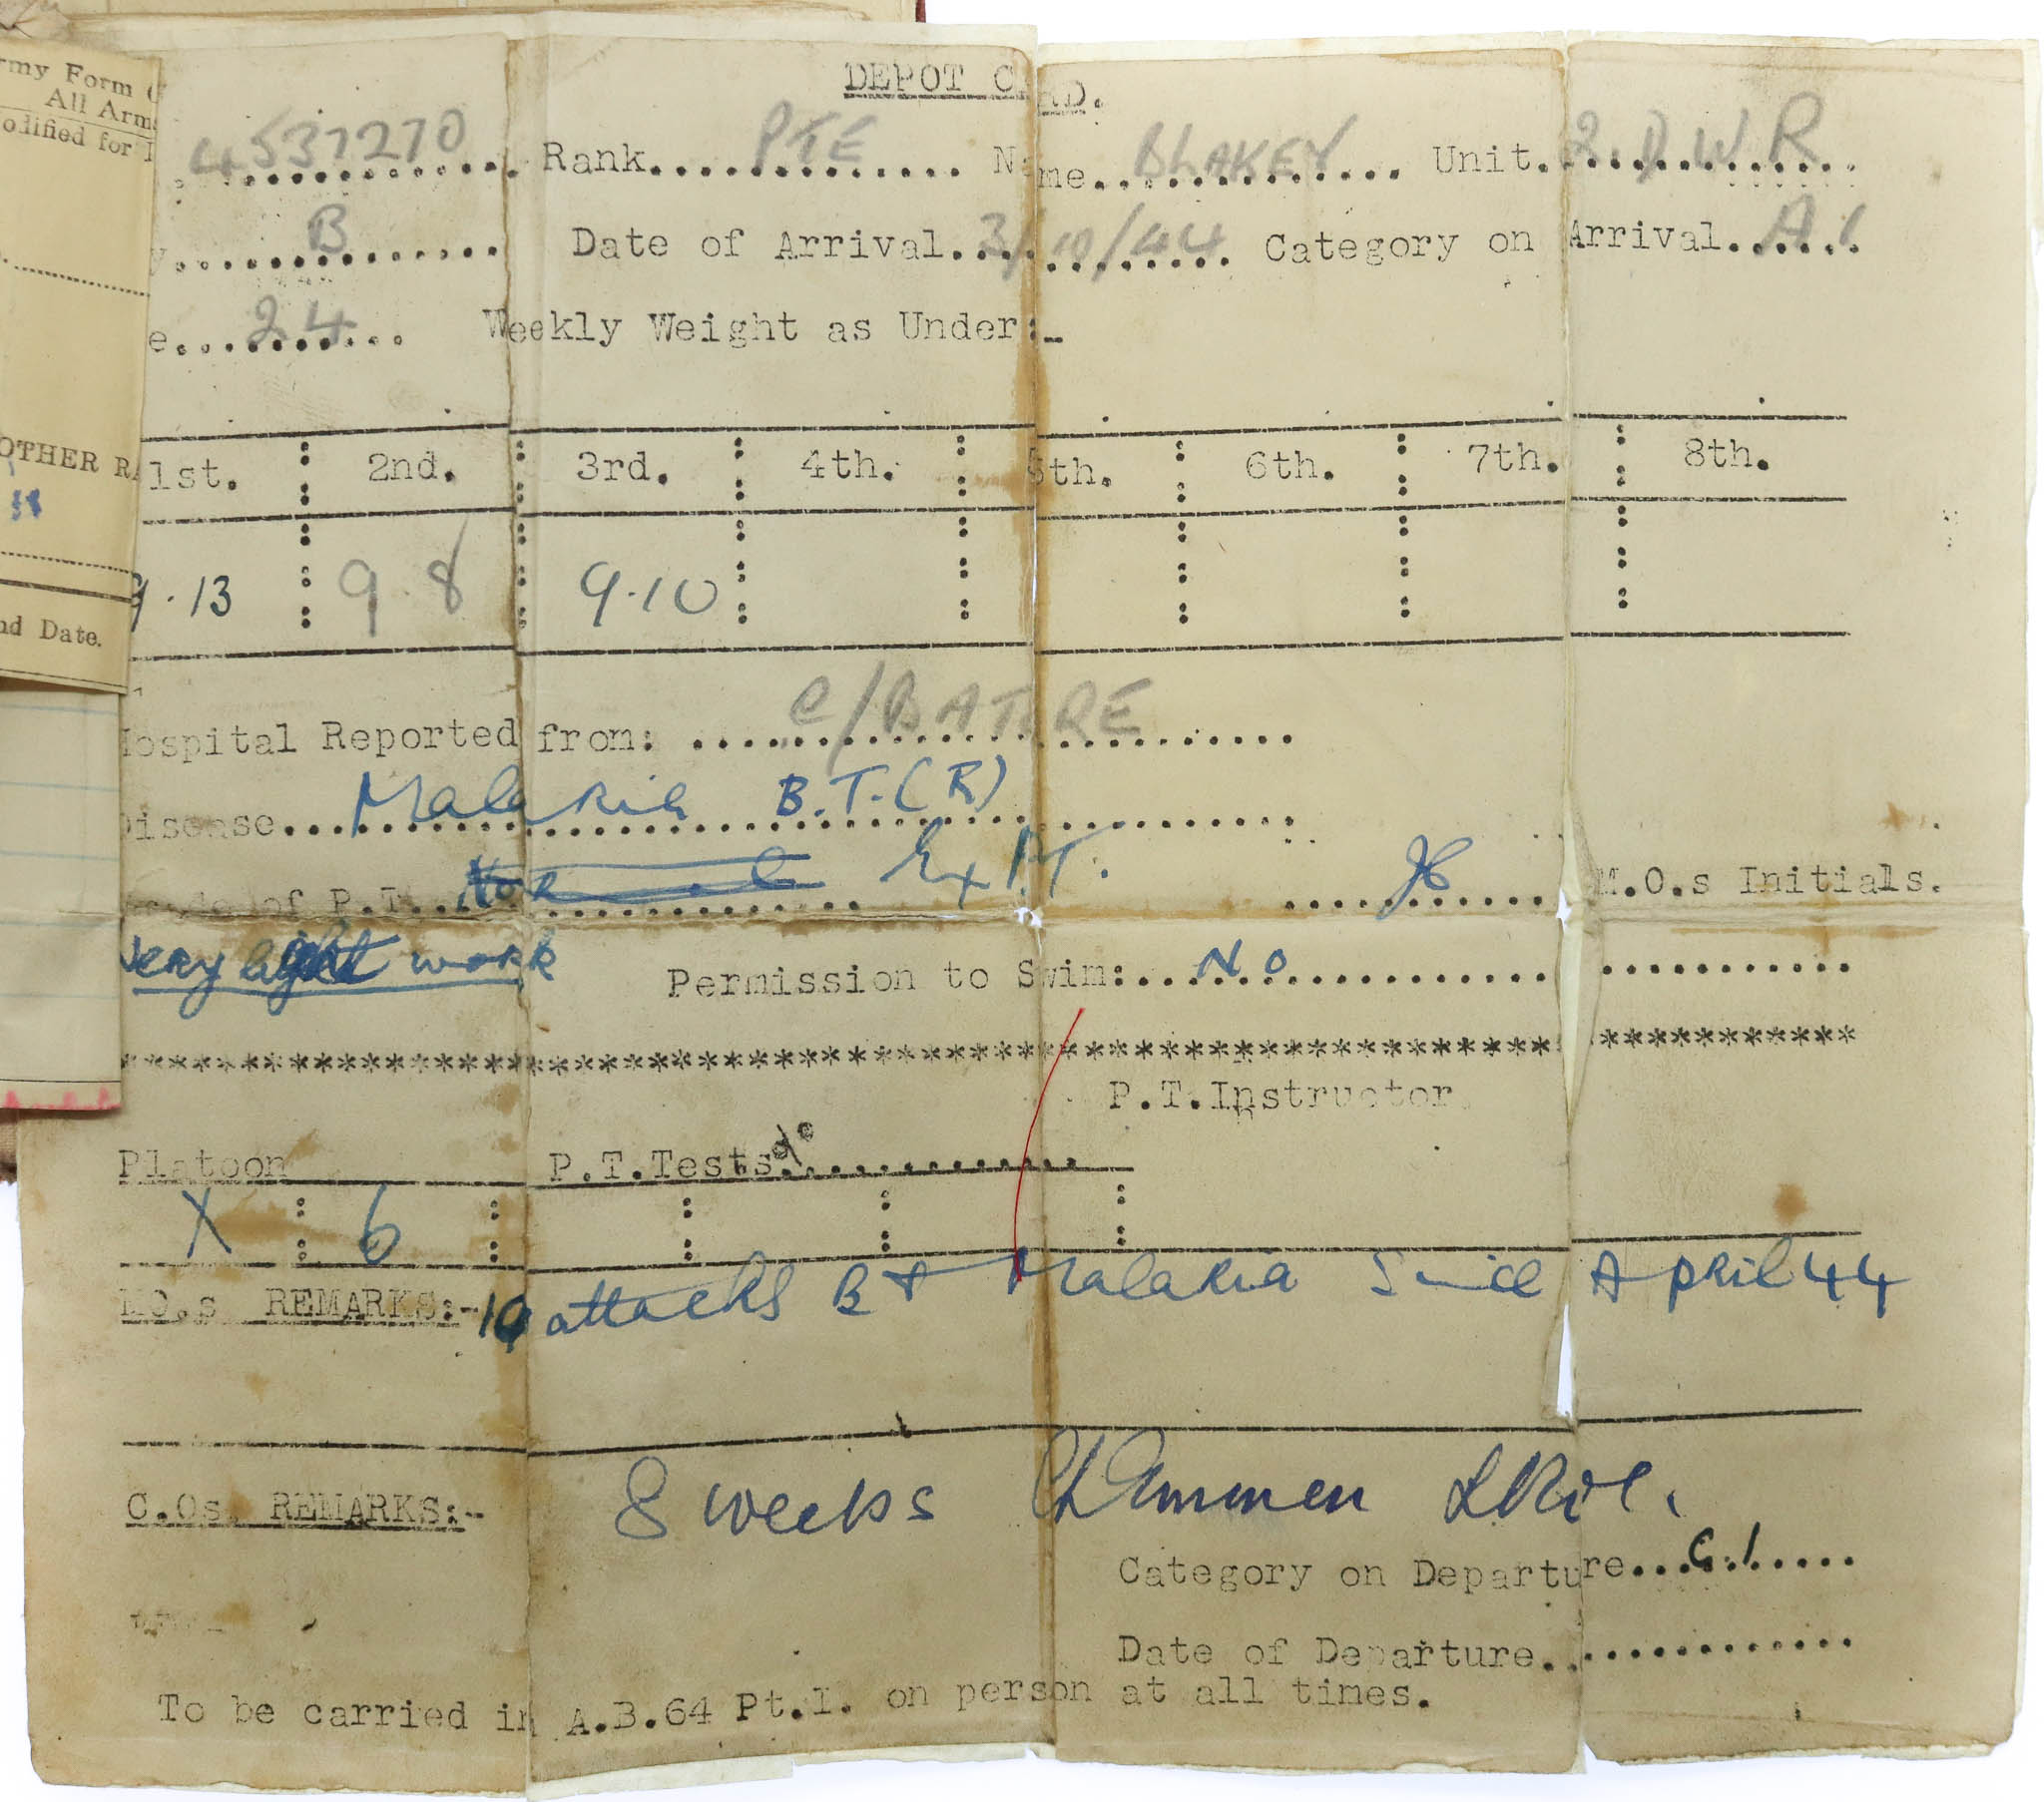 rmy Form
All Arms
odified for I
OTHER RA
nd Date.
DEPOT CARD.
4537270 Rank PTE Name BLAKEY Unit 2. D W R
y B Date of Arrival 3/10/44 Category on Arrival A1
e 24 Weekly Weight as Under:-
1st. 2nd. 3rd. 4th. 5th. 6th. 7th. 8th.
9.13 9.8 9.10
Hospital Reported from:
Disease Malaria B.T.(R)
Grade of P.T. Normal Ex P.T. M.O.s Initials.
Very light work
Permission to Swim: No
************************************************************************
P.T.Instructor
Platoon P.T.Tests
X 6
MO.s REMARKS:- 10 attacks BT Malaria Since April 44
C.Os. REMARKS:- 8 weeks
Category on Departure C.1
Date of Departure
To be carried in A.B.64 Pt.I. on person at all times.